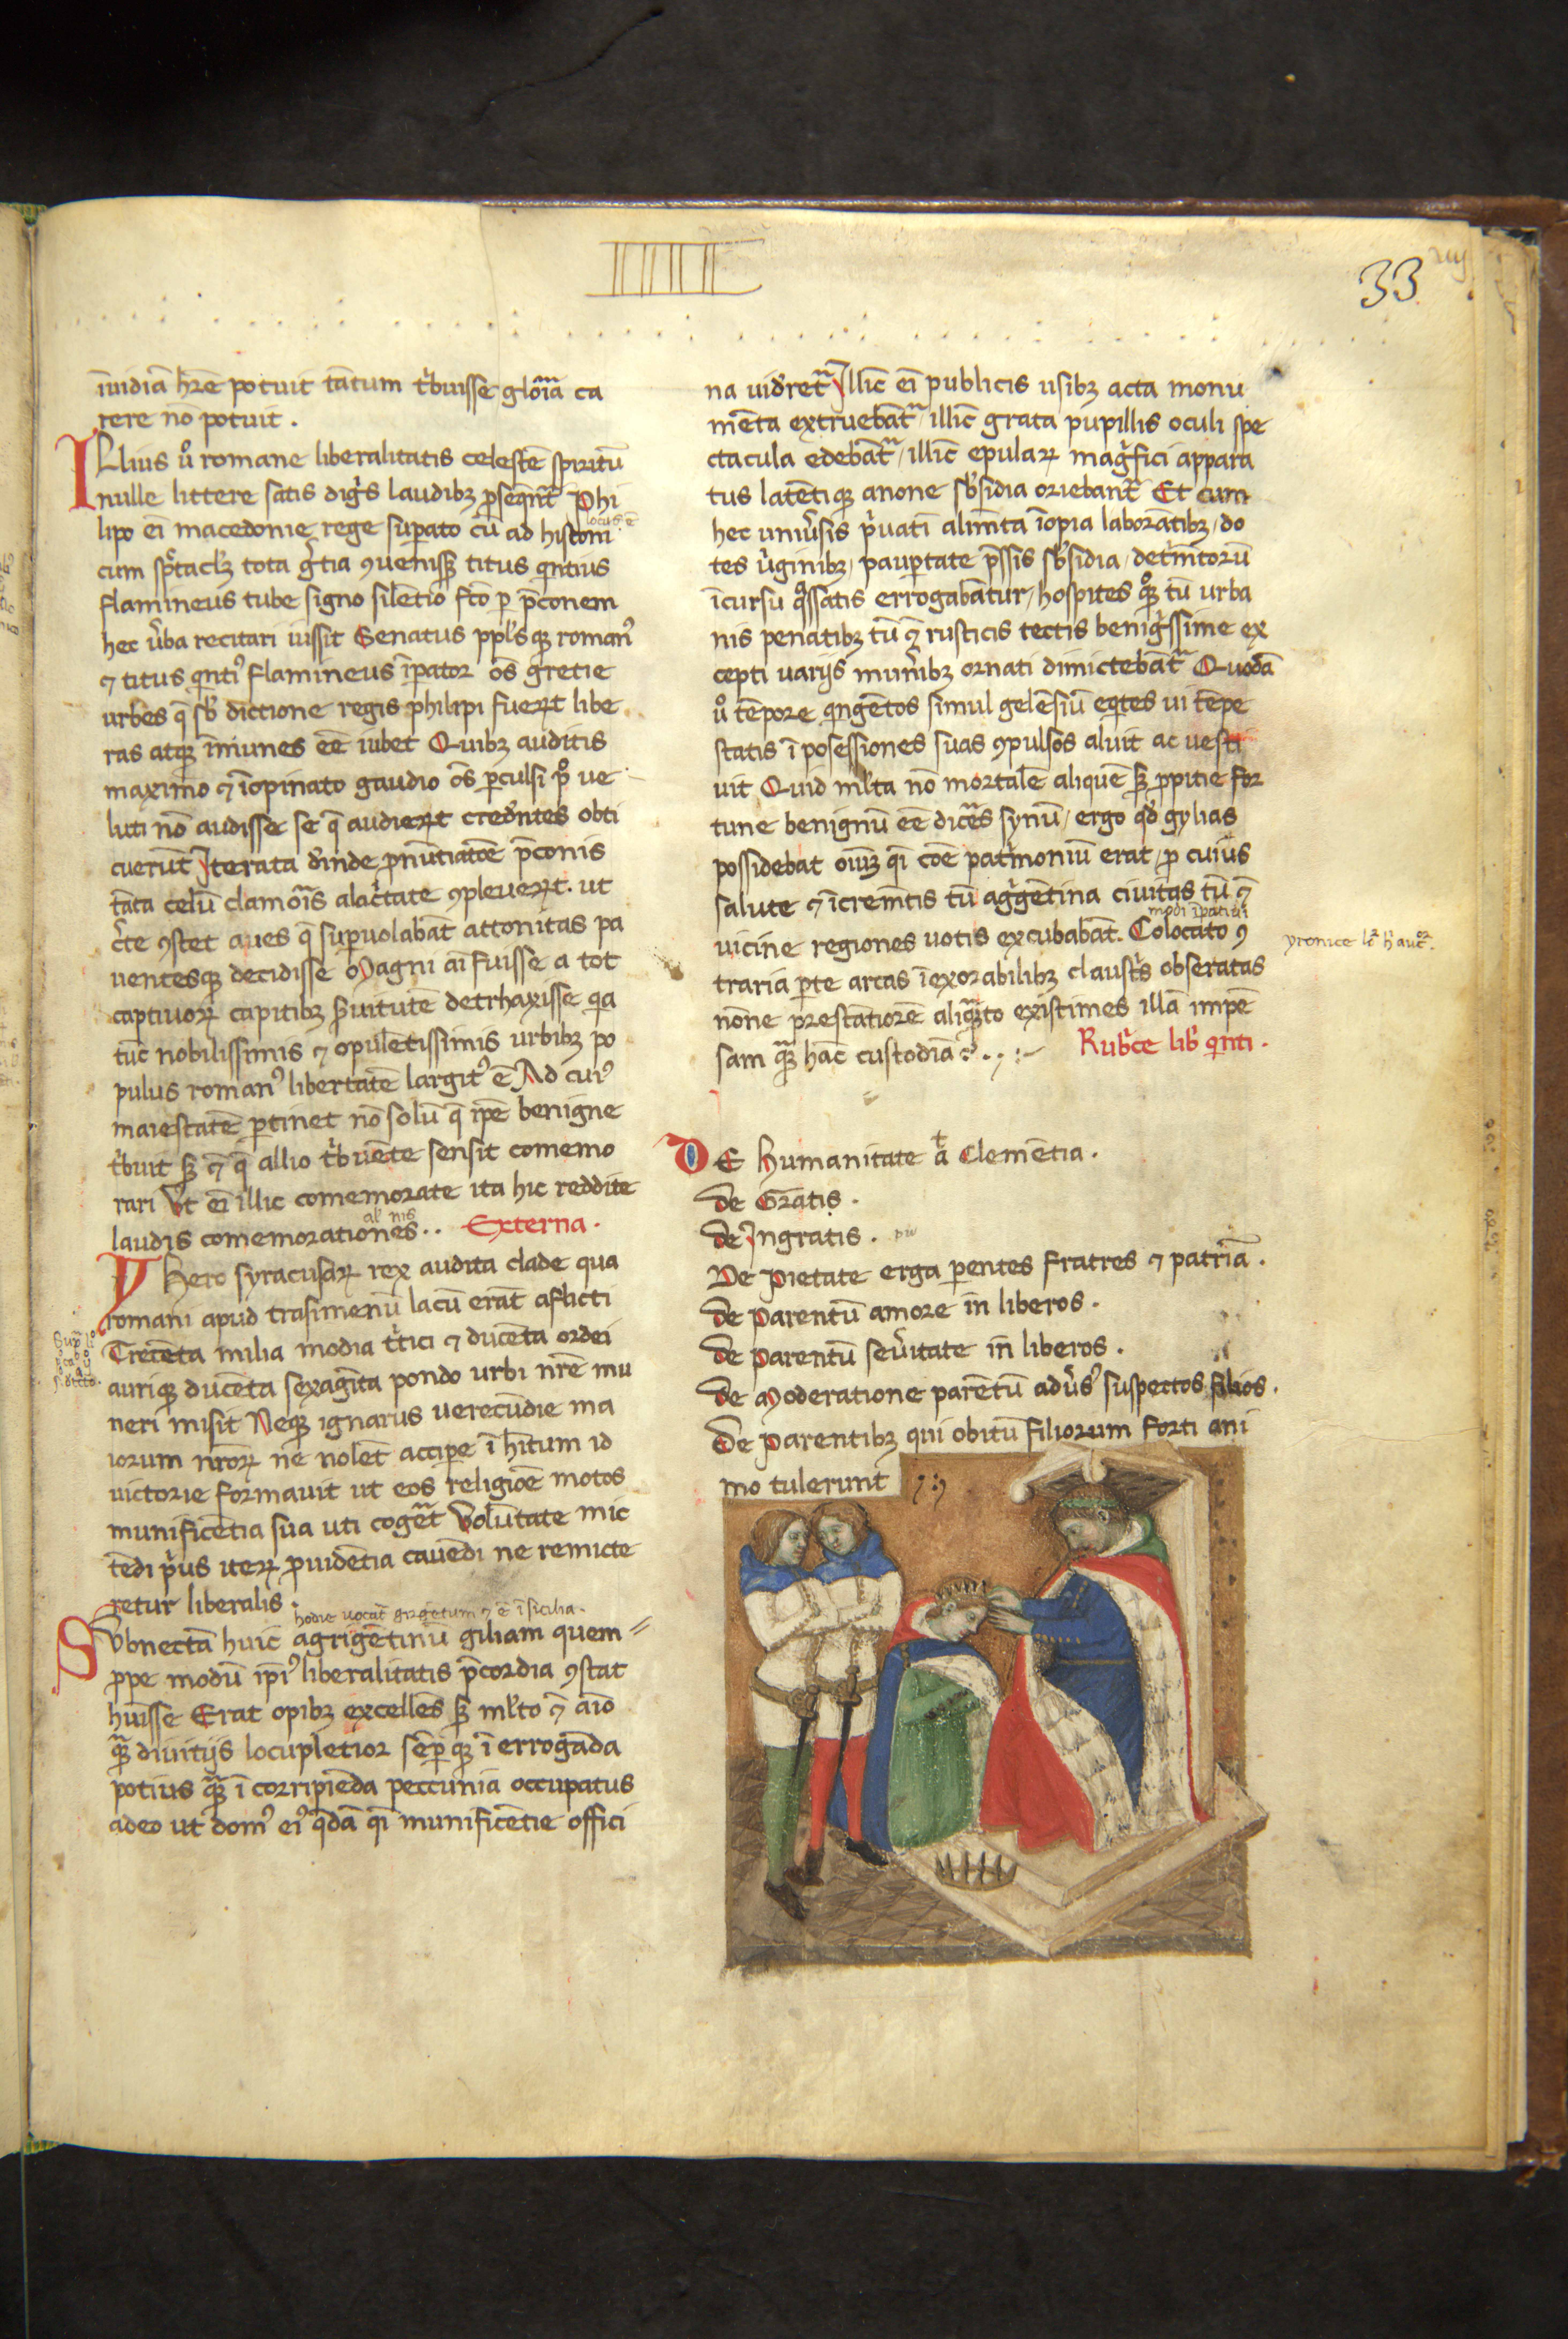 33
īuidiā hr̄e potuit tātum tͥbuisse glōiā ca
rere nō potuit .
Illius uͦ romane liberalitatis celestē spiritū
nulle littere satis digͥs laudibꝫ ꝑseqn̄t͛ Phi
locus ē
lipo ei macedonie rege supato cū ad histoni
cum spͨtaclꝫ tota gͣtia ꝯuenisꝫ titus qͥntius
flamineus tube signo silētio fc̄o ꝑ p̄conem
hec ủba recitari iussit Senatus ppl's qꝫ romanꝰ
⁊ titus qͥntiꝰ flamineus īpator oēs gretie
urbes q̄ sb' dictione regis philipi fueꝝt libe
ras atqꝫ īmunes eē iubet Quibꝫ auditis
maximo ⁊ īopinato gaudio oēs ꝑculsi pͦ ue
luti nō audisse se q̄ audieꝝt cred'ntes obti
cuerūt Iterata d'inde ꝓnūtiatōe p̄conis
tāta celū clamōis alacͥtate ꝯpleueꝝt . ut
c̉te ꝯstet aues q̄ suꝑuolabāt attonitas pa
uentesqꝫ decidisse Magni aī fuisse a tot
captiuoꝝ capitibꝫ s̉uitutē detrhaxisse qͣ
tūc nobilissimis ⁊ opulētissimis urbibꝫ po
pulus romanꝰ libertatē largitꝰ ē Ad cuiꝰ
maiestatē ꝑtinet nō solū q̄ ip̄e benigne
tͥbuit sꝫ ⁊ q̄ allio tͥbuēte sensit comemo
rari Ut ei illic comemorate ita hic reddite
al' nis
laudis comemorationes . . Externa .
Hero syracusaꝝ rex audita clade qua
romani apud trasimenū lacū erāt aflicti
Trecēta milia modia tͥtici ⁊ ducēta ordei
auriqꝫ ducēta sexagīta pondo urbi nr̄e mu
neri misit Neqꝫ ignarus uerecūdie ma
iorum nr̄oꝝ ne nolēt accipe ī hītum id
uictorie formauit ut eos religiōe motos
munificētia sua uti cogēt͛ Volūtate mic
tēdi pͥus iteꝝ ꝓuidētia cauēdi ne remicte
retur liberalis .
hodie uocat͛ girgētum ⁊ ē ī sicilia .
Subnectā huic agrigētinū giliam quem
ꝓpe modū ip̄iꝰ liberalitatis p̄cordia ꝯstat
huisse Erat opibꝫ excellēs sꝫ ml'to ⁊ aīo
qͣꝫ diuitijs locupletior sēꝑ qꝫ ī errogāda
potius qͣꝫ ī corripiēda peccunia occupatus
adeo ut domꝰ eiꝰ qͣdā qͥ munificētie offici
na uid'ret͛ Illic ei publicis usibꝫ acta monu
mēta extruebāt͛ illic grata pupillis oculi spe
ctacula edebāt͛ / illic epulaꝝ magͥfici appara
tus latētiqꝫ anone sb'sidia oriebant͛ Et cum
hec uniủsis pͥuatī alimīta īopia laborātibꝫ / do
tes ủginibꝫ / pauꝑtate p̄ssis sb'sidia / detͥmtorū
īcursu qͣssatis errogabātur / hospites qͦꝫ tū urba
nis penatibꝫ tū ⁊ rusticis tectis benigͥssime ex
cepti uarijs mun̉ibꝫ ornati dimictebāt͛ Quodā
uͦ tēpore qͥngētos simul gelēsiū eqͥtes ui tēpe
statis ī posessiones suas ꝯpulsos aluit ac uesti
uit Quid ml'ta nō mortalē aliquē sꝫ ꝓpitie for
tune benignū eē dic̉es synū / ergo qd' gylias
possidebat oīuꝫ qͥ coē patͥmoniū erat / ꝓ cuius
salute ⁊ īcremtis tū agͥgētina ciuitas tū ⁊
modi īpatiui
uicine regiones uotis excubabāt . Colocato ꝯ
yronice lͦ h' aucͦr .
traria ꝑte arcas īexorabilibꝫ claustͥs obseratas
nōne prestātiorē aliqͣꝫto existimes illā impē
sam qͣꝫ hāc custodiā ? . . : ~ Rubͥce lib' qͥnti .
De Humanitate ⁊ Clemētia .
de Gratis .
de Ingratis .
De Pietate erga ꝑentes fratres ⁊ patriā .
de Parentū amore in liberos .
de Parentū seủitate in liberos .
de Moderatione parētū adủsꝰ suspectos filios .
De Parentibꝫ qui obitū filiorum forti ani
mo tulerunt